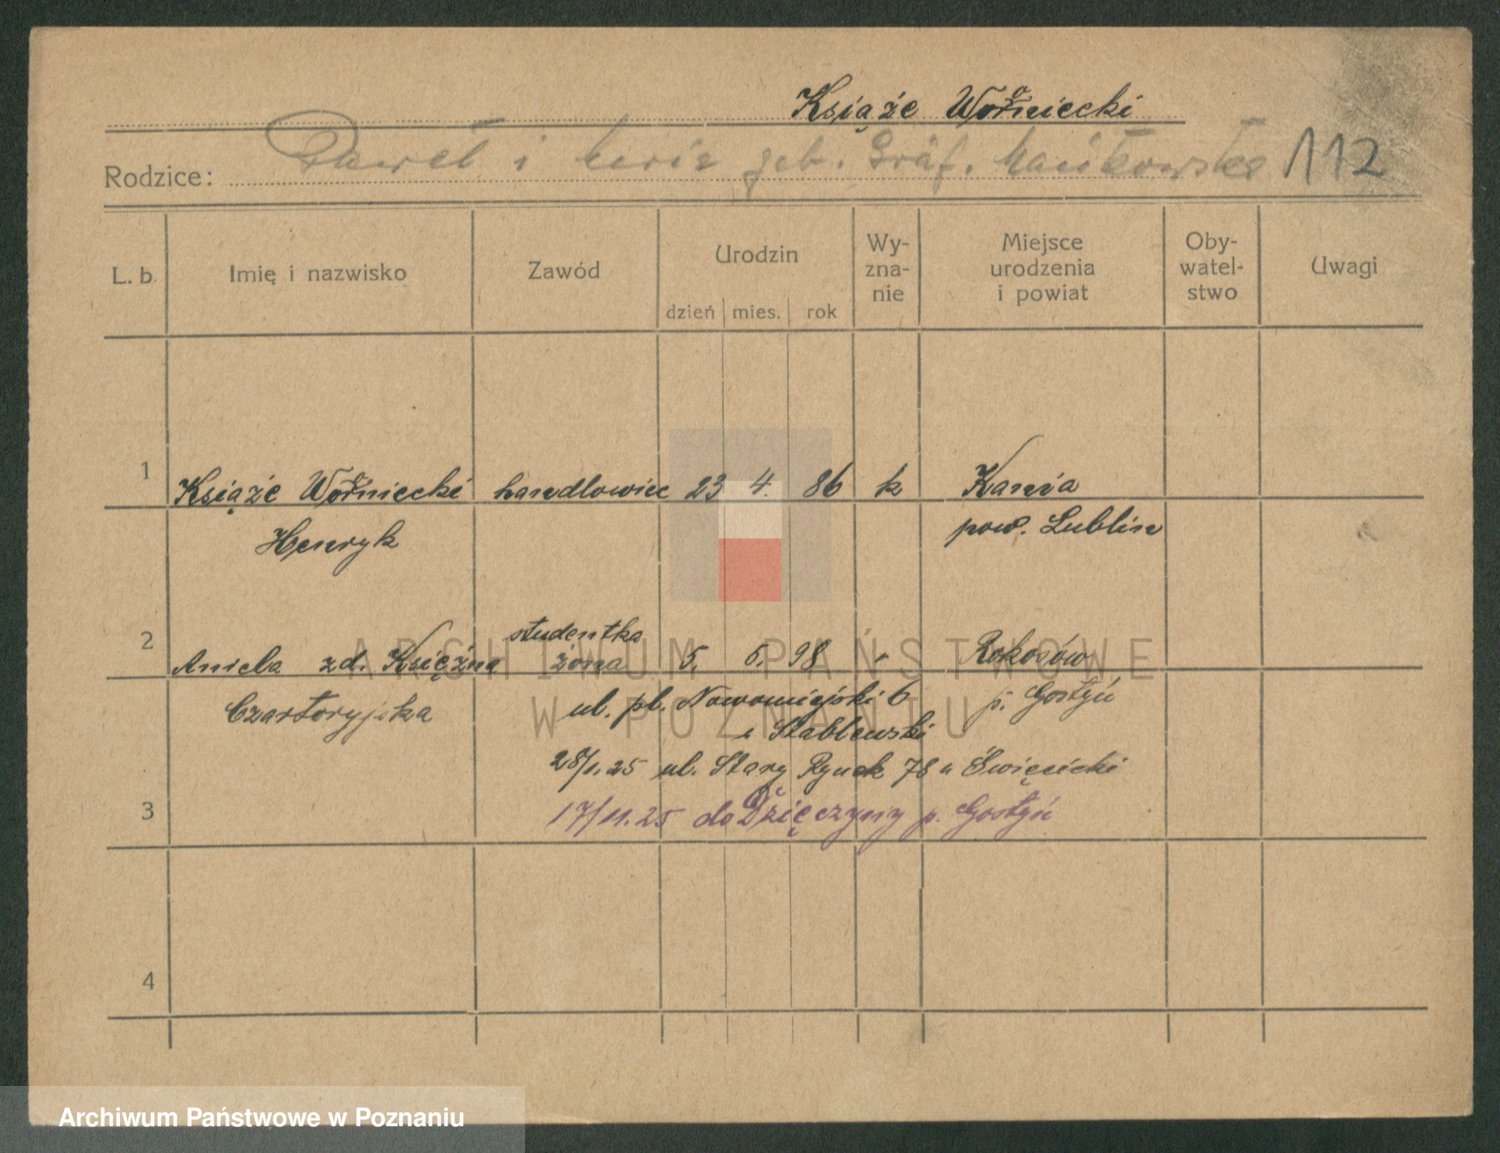 Książe Woźniecki
Rodzice: Paweł i Maria geb. Gräf. Mańkowska 112
L. b. Imię i nazwisko Zawód Urodzin Wy-zna-nie Miejsce urodzenia i powiat Oby-watel-stwo Uwagi
dzień mies. rok
1 Książe Woźniecki handlowiec 23 4. 86 k Kania
Henryk pow. Lublin
2 Aniela zd. Księżna studentka żona 5. 6. 98 Rokosów
Czartoryjska ul. pl. Nowomiejski 6 p. Gostyń
Stablewski
28/1.25 ul. Stary Rynek 78 u Święcicki
3 17/11.25 do Dzięczyny p. Gostyń
4
ARCHIWUM PAŃSTWOWE
W POZNANIU
Archiwum Państwowe w Poznaniu